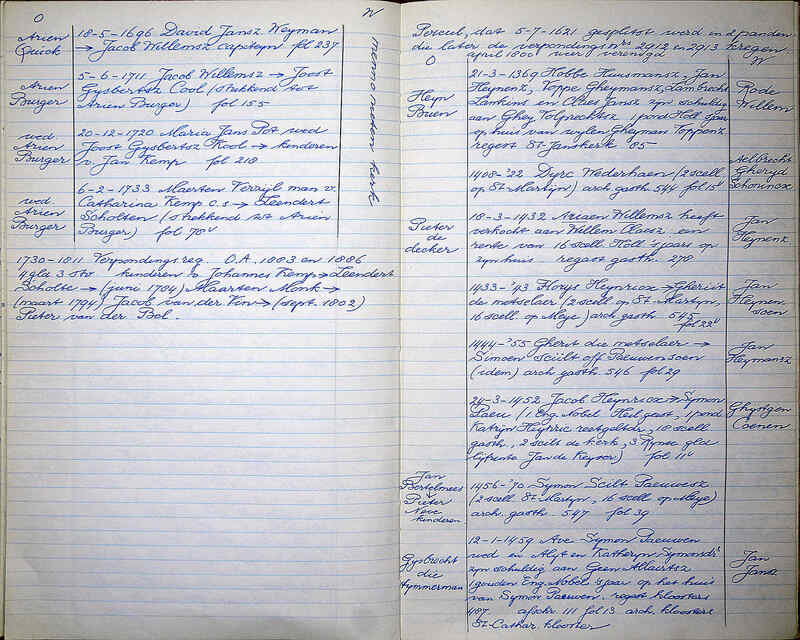 O
W
Arien
Quick
18-5-1696 David Jansz. Weyman
→ Jacob Willemsz capiteyn fol 237
Arien
Burger
5-6-1711 Jacob Willemsz → Joost
Gysbertsz Cool (strekkend tot
Arien Burger) fol 155
wed.
Arien
Burger
20-12-1720 Maria Jans Pot wed
Joost Gysbertsz Kool → kinderen
v. Jan Kemp fol 218
wed
Arien
Burger
6-2-1733 Maerten Terzijl man v.
Catharina Kemp c.s → Leendert
Scholten (strekkend tot Arien
Burger) fol 70v
kerk
1730-1811 Verpondingsreg O.A. 1803 en 1886
4 gls 3 st kinderen v Johannes Kemp → Leendert
Scholte → (juni 1784) Maarten Monk →
(maart 1794) Jacob van der Kin → (sept. 1802)
Pieter van der Bol.
Perceel, dat 5-7-1621 gesplitst werd in 2 panden
die later de verpondings nrs 2912 en 2913 kregen
april 1800 weer verenigd
O
W
Heyn
Buen
21-3-1369 Hobbe Huusmansz, Jan
Heynenz, Toppe Gheymansz, Lambrecht
Lamkins en Claes Jansz zyn schuldig
aan Ghey Tolprechtsz 1 pond Holl. 's jaars
op huis van wylen Gheyman Toppenz
regest St-Janskerk 85
Rode
Willem
1408-'22 Dyrc Wederhaen (2 scell.
op St-Martyn) arch gasth. 544 fol 15v
Aelbrecht
Gheryd
Schoninox
Pieter
de
decker
18-3-1432 Adriaen Willemsz heeft
verkocht aan Willem Claesz een
rente van 16 scell. Holl 's jaars op
zyn huis regest gasth. 278
Jan
Heynenz
1433-'43 Florys Heynricx → Gherist
de metselaer (2 scell. op St-Martyn,
16 scell op Meye) arch gasth 545
fol 22v
Jan
Heynen
soen
1444-'55 Gherit die metselaer →
Simoen Scilt off Paeuwensoen
(idem) arch gasth 546 fol 29
Jan
Heymansz
24-3-1452 Jacob Heynricx → Symon
Paeu (1 Eng. Nobel Heil. gest, 1 pond
Katryn Heynric reetgeltdr, 10 scell
gasth, 2 scilt de kerk, 3 Rynsc gld
lyfrente Jan de Keyser) fol 11v
Ghysgen
Coenen
Jan
Bertelmees
Pieter
Neve
kinderen
1456-'70 Symon Scilt Paeuwesz
(2 scell. St-Martyn, 16 scell op Meye)
arch. gasth. 547 fol 39
Gysbrecht
die
tymmerman
12-1-1459 Ave Symon Paeuwen
wed en Alyt en Katheryn Symonsdr
zyn schuldig aan Geen Allairtsz
1 gouden Eng. Nobel 's jaars op het huis
van Symon Paeuwen. regest kloosters
487 afschr. 111 fol 13 arch. kloosters
St-Cathar. klooster
Jan
Jansz